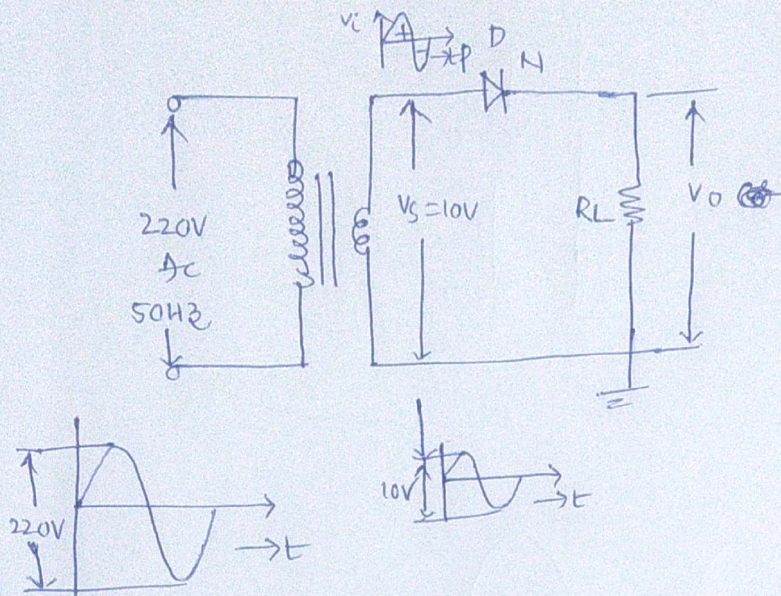 Vi
+
t
P
D
N
220V
AC
50Hz
VS=10V
RL
VO
220V
t
10V
t